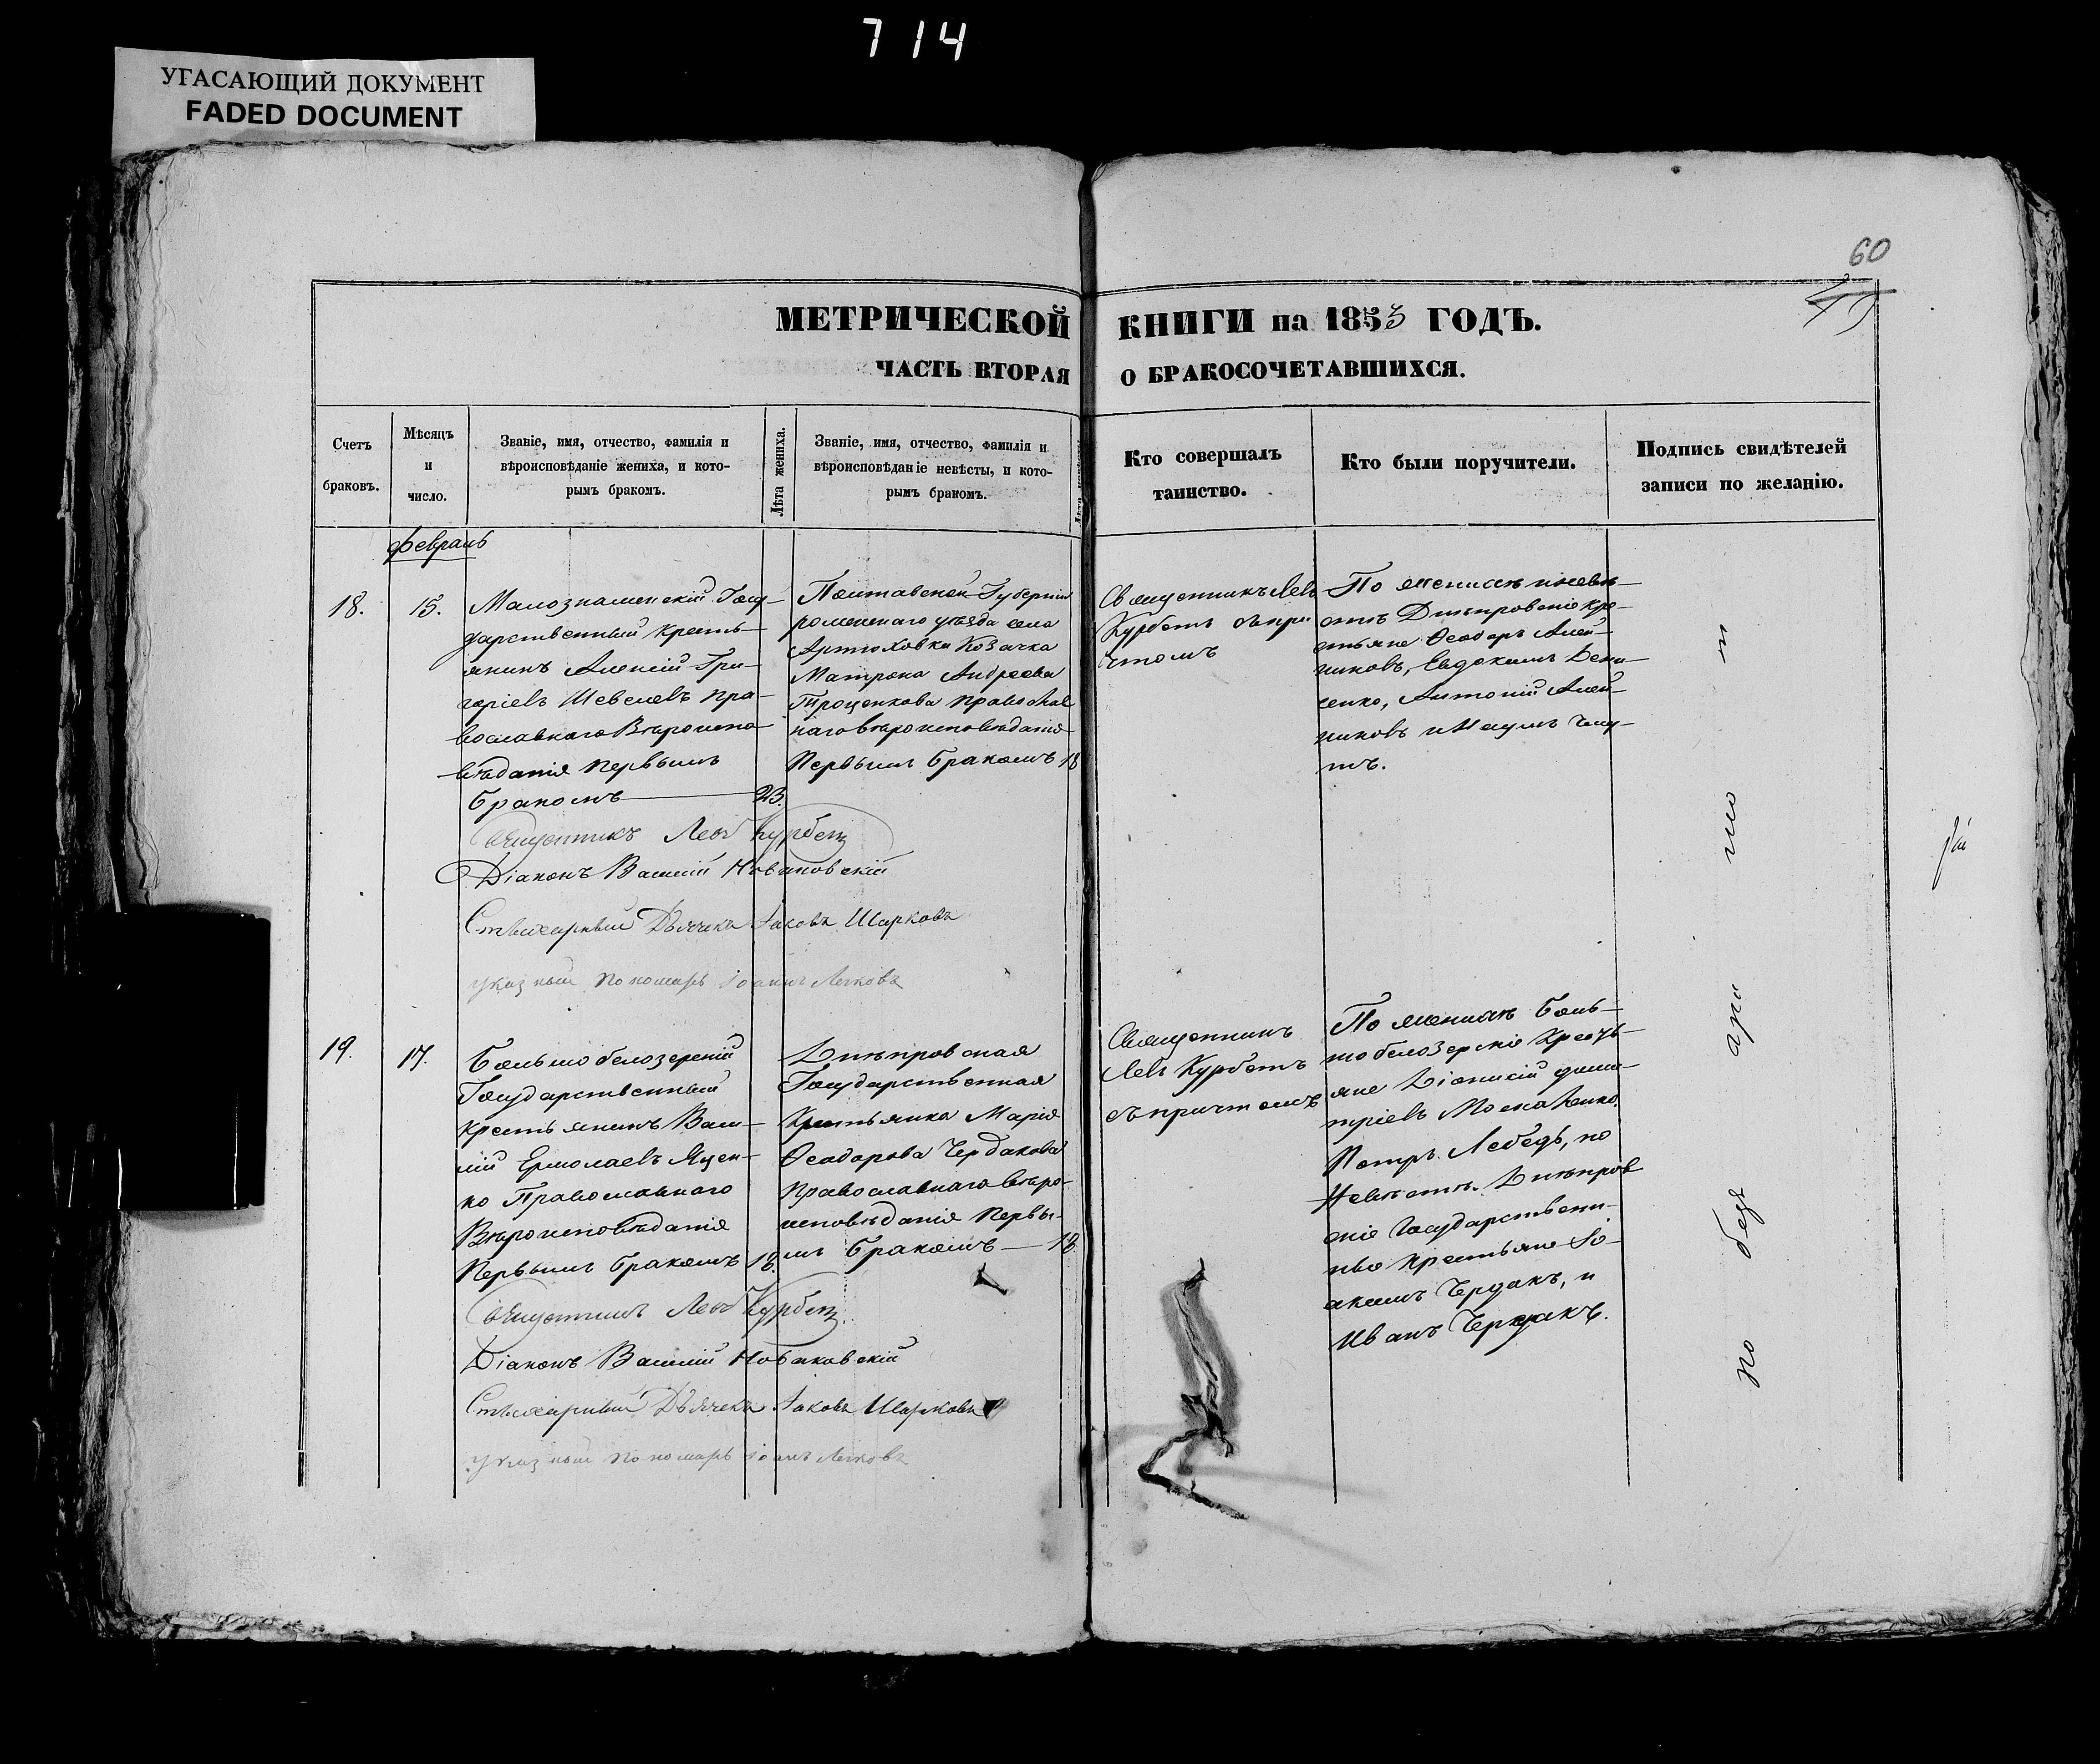 714
УГАСАЮЩИЙ ДОКУМЕНТ
FADED DOCUMENT
60
МЕТРИЧЕСКОЙ КНИГИ на 1853 ГОДЪ.
ЧАСТЬ ВТОРАЯ О БРАКОСОЧЕТАВШИХСЯ.
Счетъ
браковъ.
Мѣсяцъ
и
число.
Званіе, имя, отчество, фамилія и
вѣроисповѣданіе жениха, и кото-
рымъ бракомъ.
Лѣта жениха.
Званіе, имя, отчество, фамилія и
вѣроисповѣданіе невѣсты, и кото-
рымъ бракомъ.
Кто совершалъ
таинство.
Кто были поручители.
Подпись свидѣтелей
записи по желанію.
Февраль
18.
15.
Малознаменскій Госу-
дарственный кресть-
янинъ Алексій Гри-
горіевъ Шевелевъ пра-
вославнаго Вѣроиспо-
вѣданія первымъ
бракомъ 23.
Полтавской Губерніи
роменскаго уѣзда села
Артюховки Козачка
Матрона Андреева
Троценкова православ
наго вѣроисповѣданія
Первымъ бракомъ 18
Священникъ Левъ
Курбетъ съ при
чтомъ
По женихѣ и невѣ-
стѣ Днѣпровскіе кре-
стьяне Ѳеодоръ Алей-
никовъ, Евдокимъ Дени-
ченко, Антоній Алей-
никовъ и Наумъ
Священникъ Левъ Курбетъ
Діаконъ Василій Новаковскій
Стихарный Дьячекъ Іаковъ Шарковъ
указный пономарь Іоаннъ
19.
17.
Больше белозерскій
Государственный
крестьянинъ Васи-
лій Ермолаевъ Яцен-
ко Православнаго
Вѣроисповѣданія
Первымъ бракомъ 18.
Днѣпровская
Государственная
Крестьянка Марія
Ѳеодорова Чердакова
православнаго вѣро-
исповѣданія Первы-
мъ бракомъ — 18.
Священникъ
Левъ Курбетъ
съ причтомъ
По женихѣ Боль-
шебелозерскіе Кресть-
яне Діонисій Дими-
тріевъ Москаленко.
Петръ Лебедь, по
Невѣстѣ. Днѣпров
скіе Государствен-
ные крестьяне Іо-
акимъ Чердакъ, и
Иванъ Чердакъ.
Священникъ Левъ Курбетъ
Діаконъ Василій Новаковскій
Стихарный Дьячекъ Іаковъ Шарковъ
указный пономарь Іоаннъ